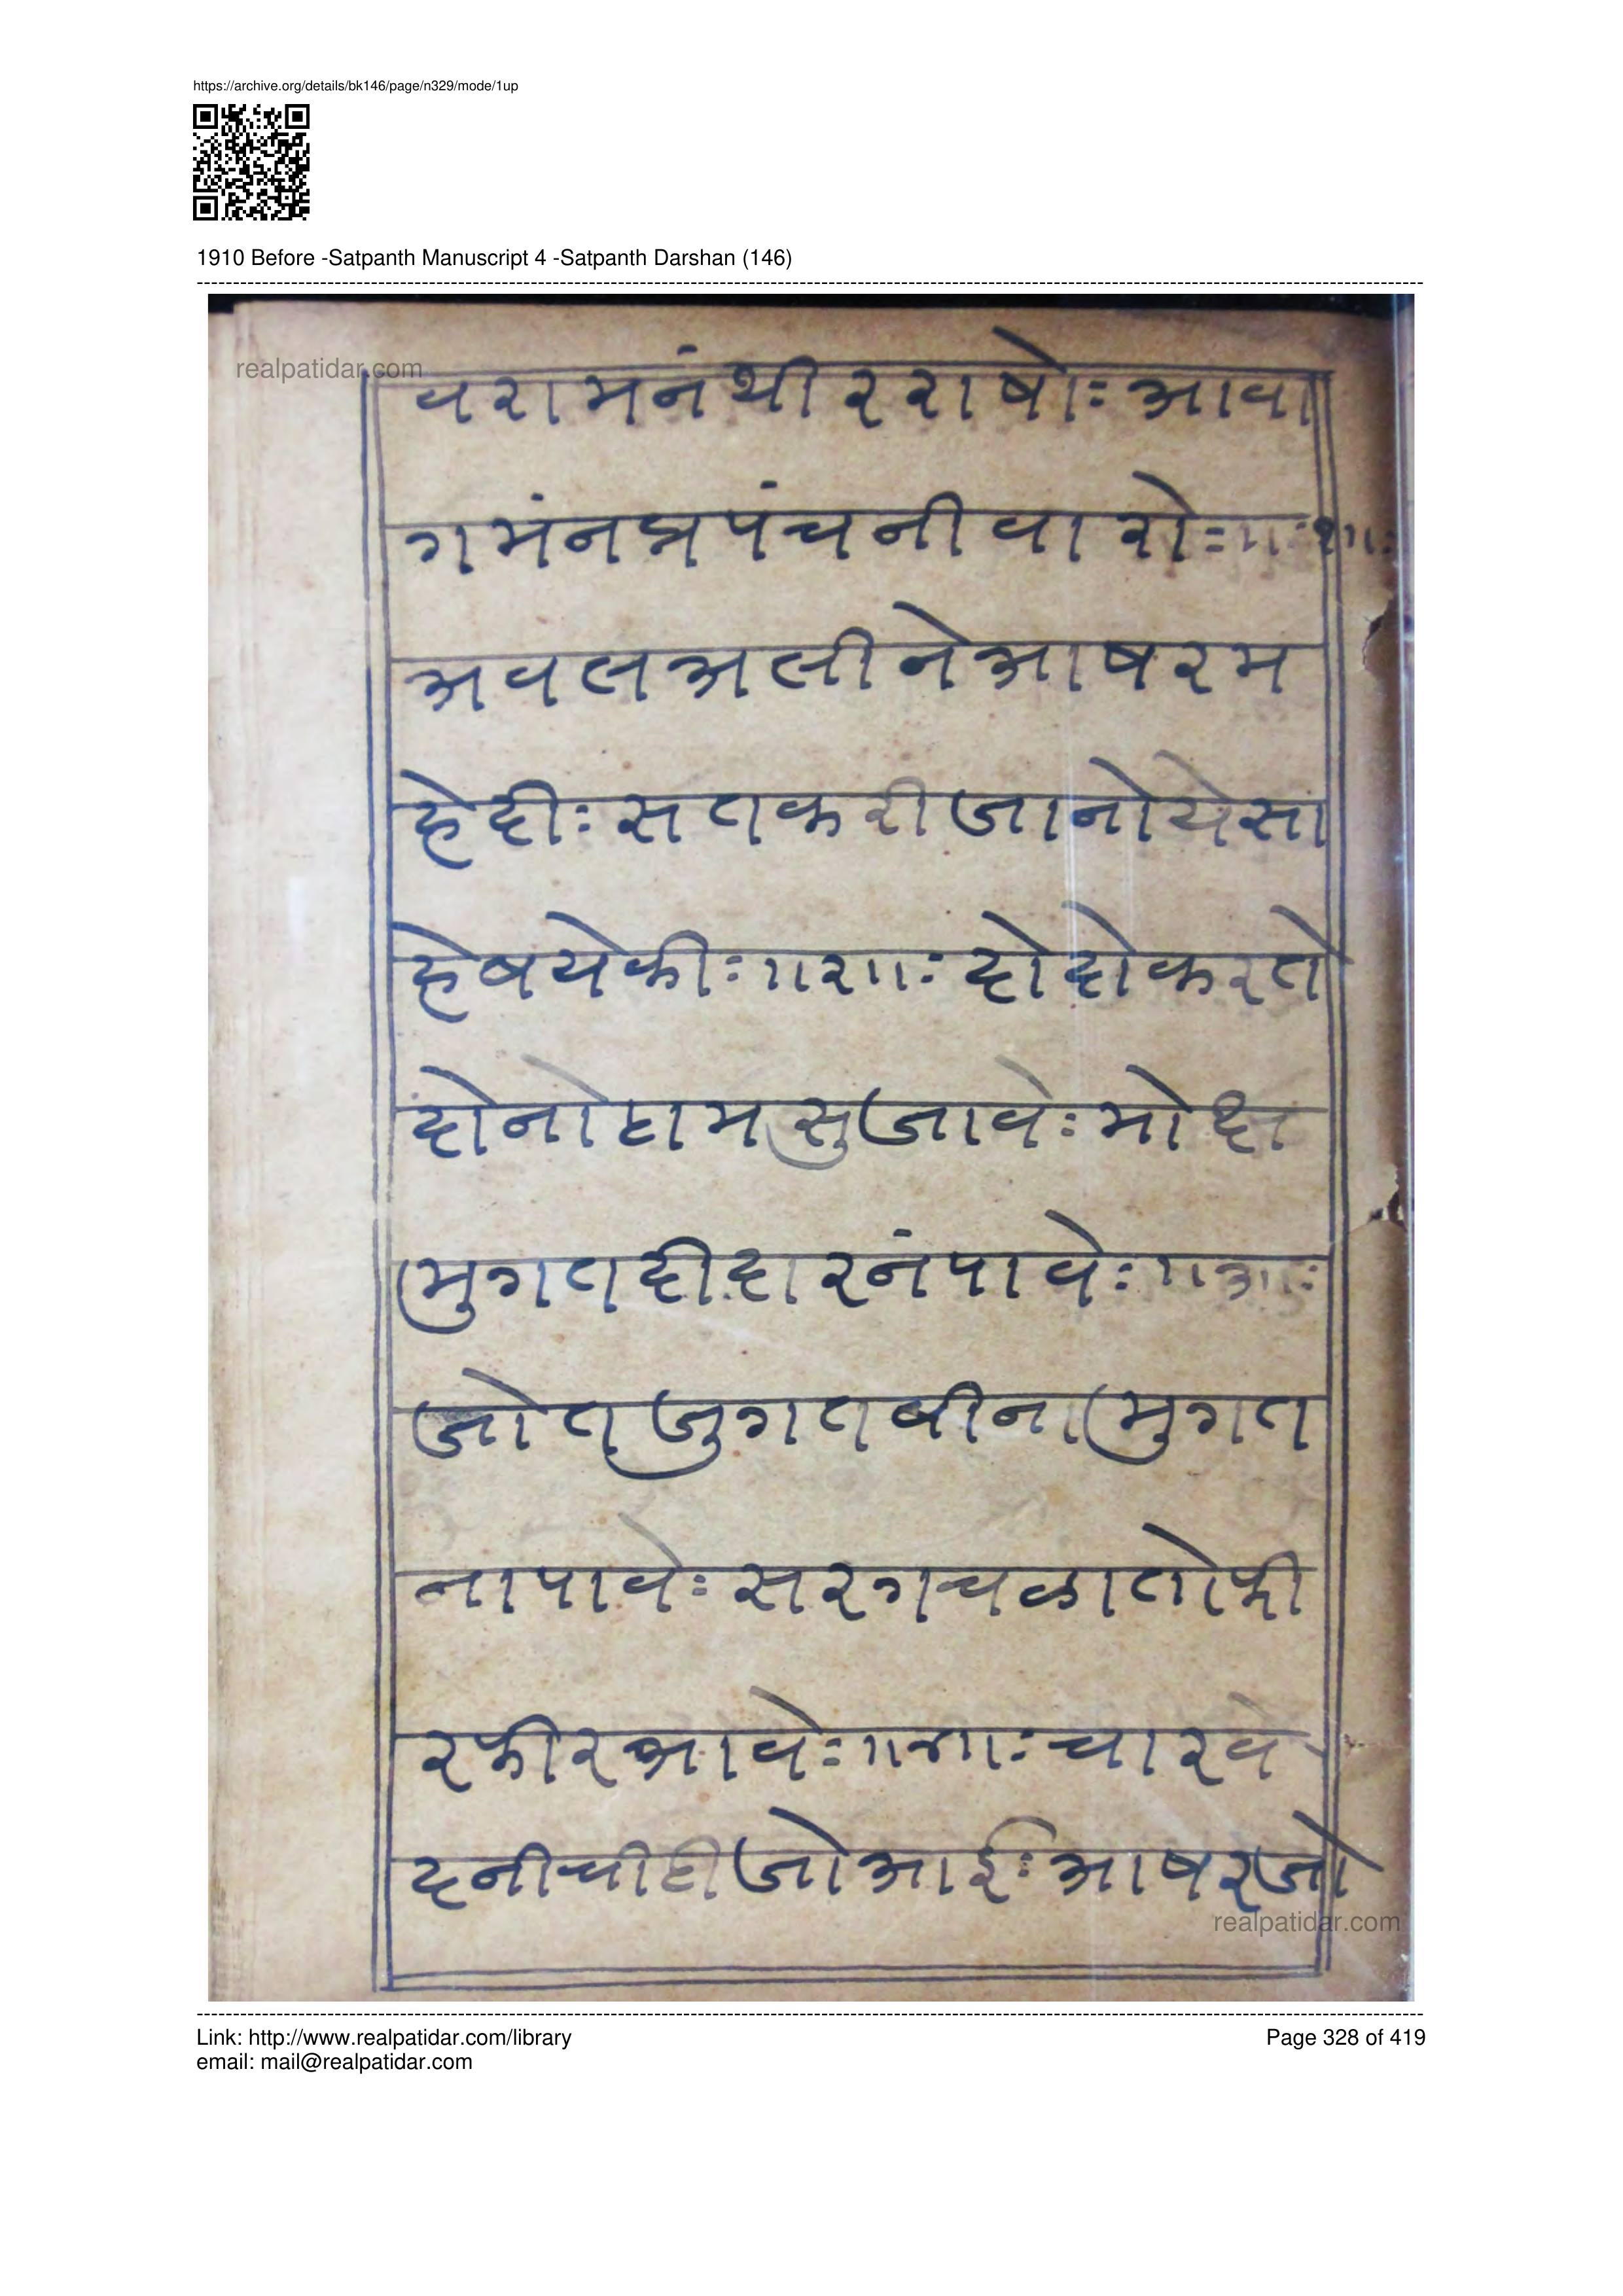 https://archive.org/details/bk146/page/n329/mode/1up
1910 Before -Satpanth Manuscript 4 -Satpanth Darshan (146)
realpatidar.com
वरामनंथीरराषोः आवा
गमंनप्रपंचनीवारोः ॥१॥ः
अवलअलीनेआषरम
हेदीः सतकरीजानोयेसा
हेबयेकीः ॥२॥ः दोदोकरते
दोनोहामसुजावेः मोक्ष
मुगतदीदारनंपावेः ॥३॥ः
जोतजुगतबीनामुगत
नापावेः सरगचळातोफी
रफीरआवेः ॥४॥ः चारवे
दनीचीहीजोआईः आषरजो
realpatidar.com
Link: http://www.realpatidar.com/library
Page 328 of 419
email: mail@realpatidar.com